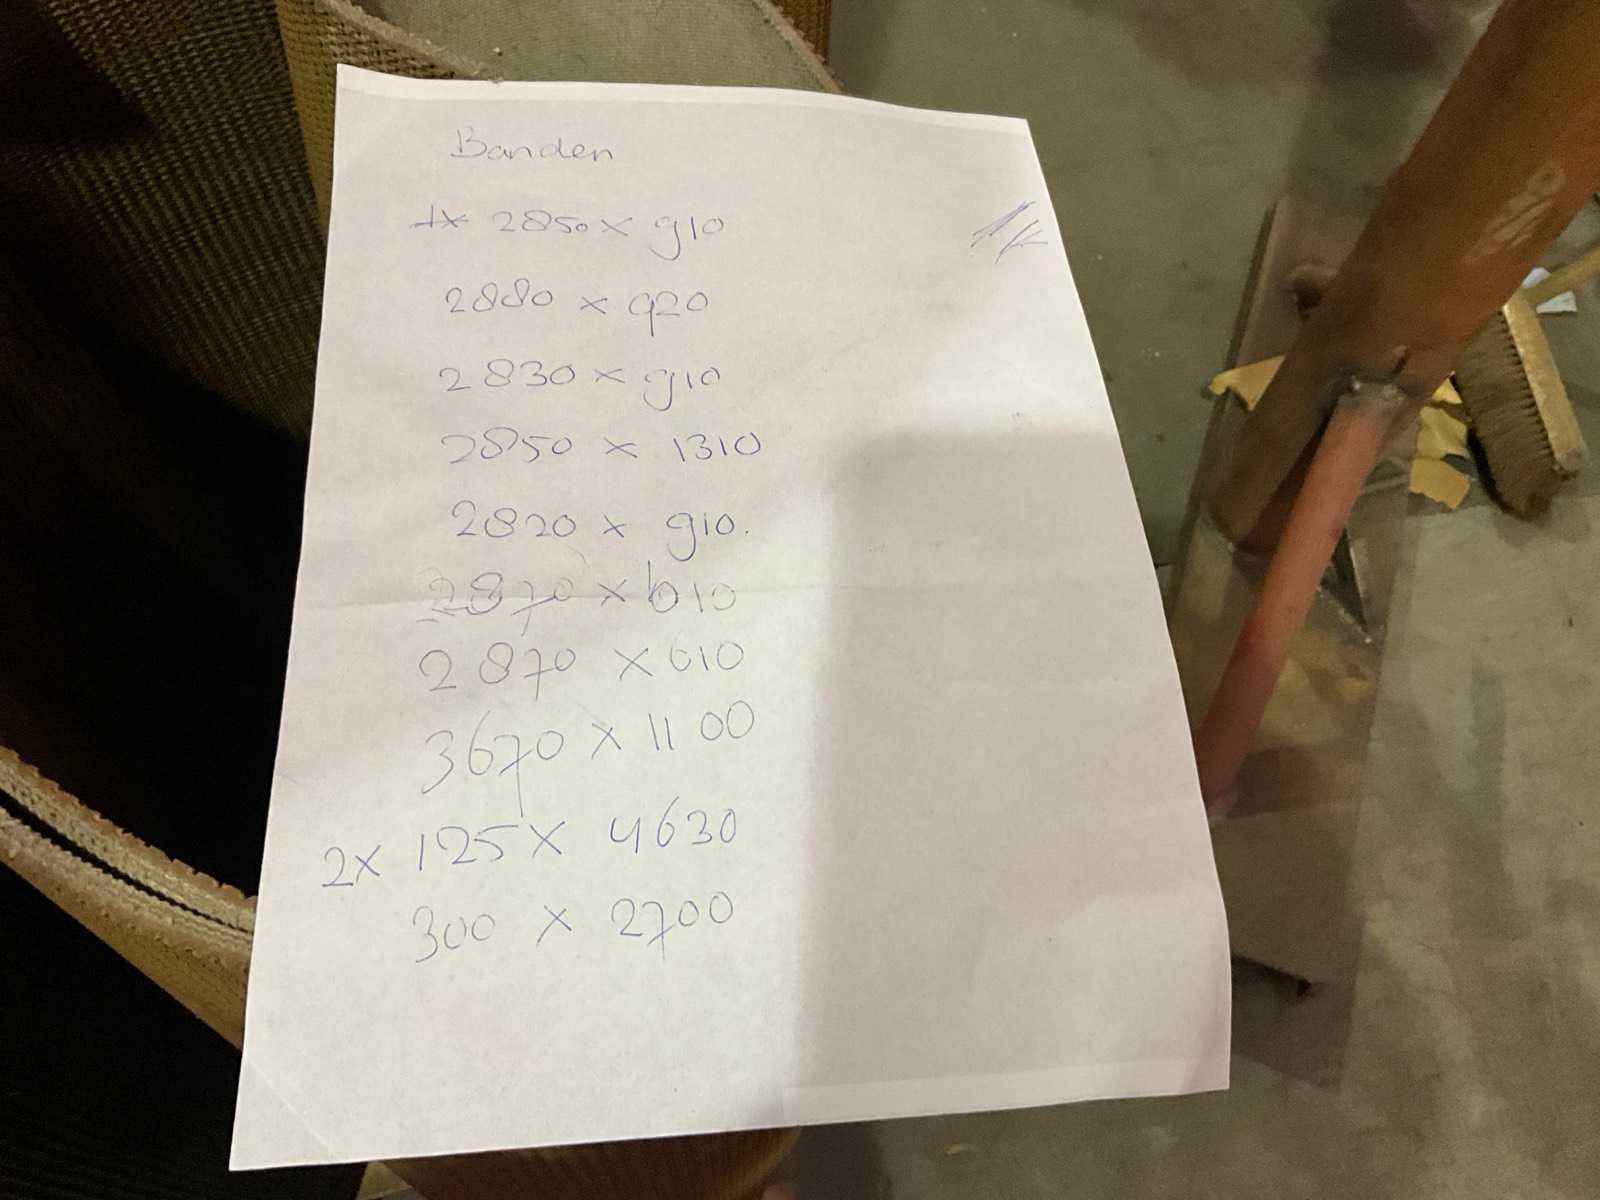 Banden
1x 2850 x 910
2880 x 920
2830 x 910
2850 x 1310
2820 x 910.
2870 x 610
2870 x 610
3670 x 1100
2x 125 x 4630
300 x 2700